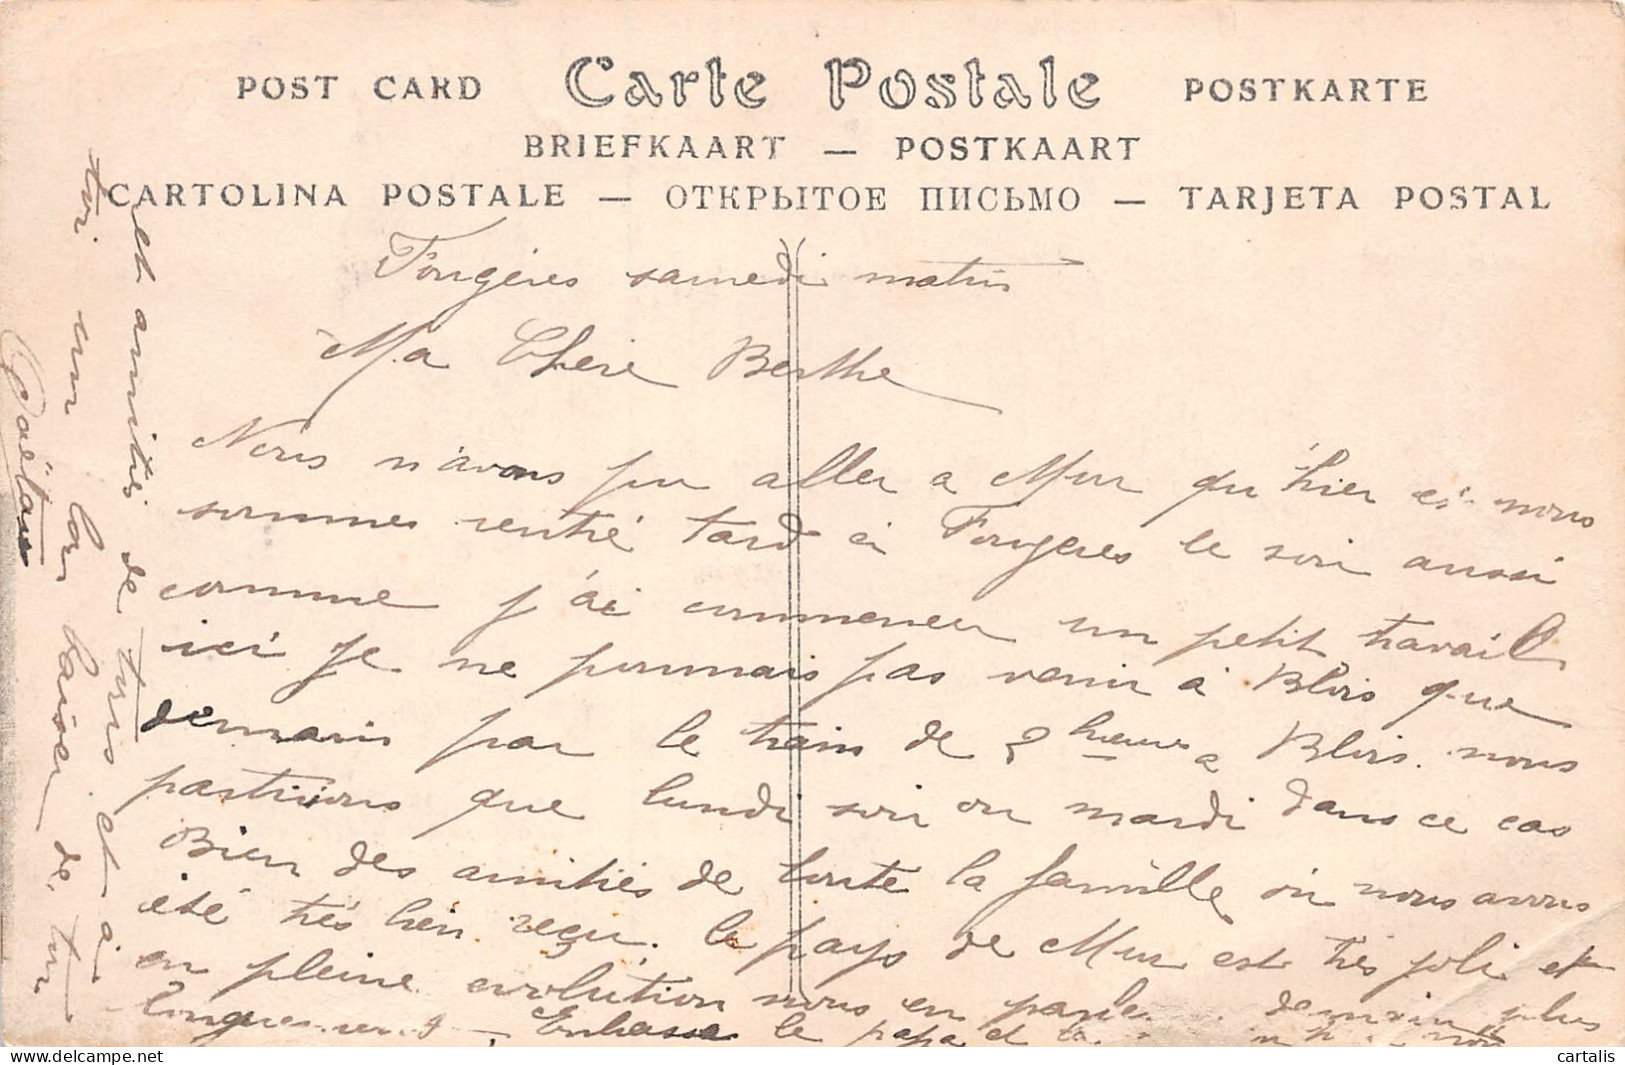 POST CARD Carte Postale POSTKARTE
BRIEFKAART — POSTKAART
CARTOLINA POSTALE — ОТКРЫТОЕ ПИСЬМО — TARJETA POSTAL
Fougères samedi matin
Ma Chère Berthe
Nous n'avons pu aller a Mur qu'hier et nous
sommes rentré tard à Fougères le soir aussi
comme j'ai commencer un petit travail
ici je ne pourrais pas venir à Blois que
demain par le train de 8 heures a Blois. nous
partirions que lundi soir ou mardi dans ce cas
Bien des amitiés de toute la famille où nous avons
été très bien reçu. le pays de Mur est très joli et
en pleine evolution nous en parle demain plus
longuement Embrasse le papa et la
et amitiés de tous et à
toi un bon baiser de ton
Gaëtan
cartalis